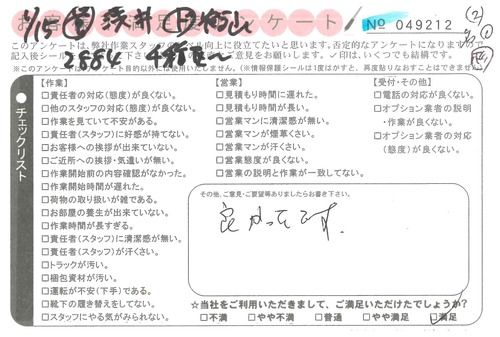 No 049212
このアンケートは、弊社作業スタッフの
向上に役立てたいと思います。否定的なアンケートになりますので
※このアンケートは
チェックリスト
【作業】
□責任者の対応(態度)が良くない。
□他のスタッフの対応(態度)が良くない。
□作業を見ていて不安がある。
□責任者(スタッフ)に好感が持てない。
□お客様への挨拶が出来ていない。
□ご近所への挨拶・気遣いが無い。
□作業開始前の内容確認がなかった。
□作業開始時間が遅れた。
□荷物の取り扱いが雑である。
□お部屋の養生が出来ていない。
□作業時間が長すぎる。
□責任者(スタッフ)に清潔感が無い。
□責任者(スタッフ)が汗くさい。
□トラックが汚い。
□梱包資材が汚い。
□運転が不安(下手)である。
□靴下の履き替えをしてない。
□スタッフにやる気がみられない。
【営業】
□見積時間に遅れた。
□見積もり時間が長い。
□営業マンに清潔感が無い。
□営業マンが煙草くさい。
□営業マンが汗くさい。
□営業態度が良くない。
□営業の説明と作業が一致してない。
【受付・その他】
□電話の対応が良くない。
□オプション業者の説明
・作業が良くない。
□オプション業者の対応
(態度)が良くない。
その他、ご意見・ご要望等ありましたらお書き下さい。
良かったです。
☆当社をご利用いただきまして、ご満足いただけたでしょうか?
□不満 □やや不満 □普通 □やや満足 ☑満足